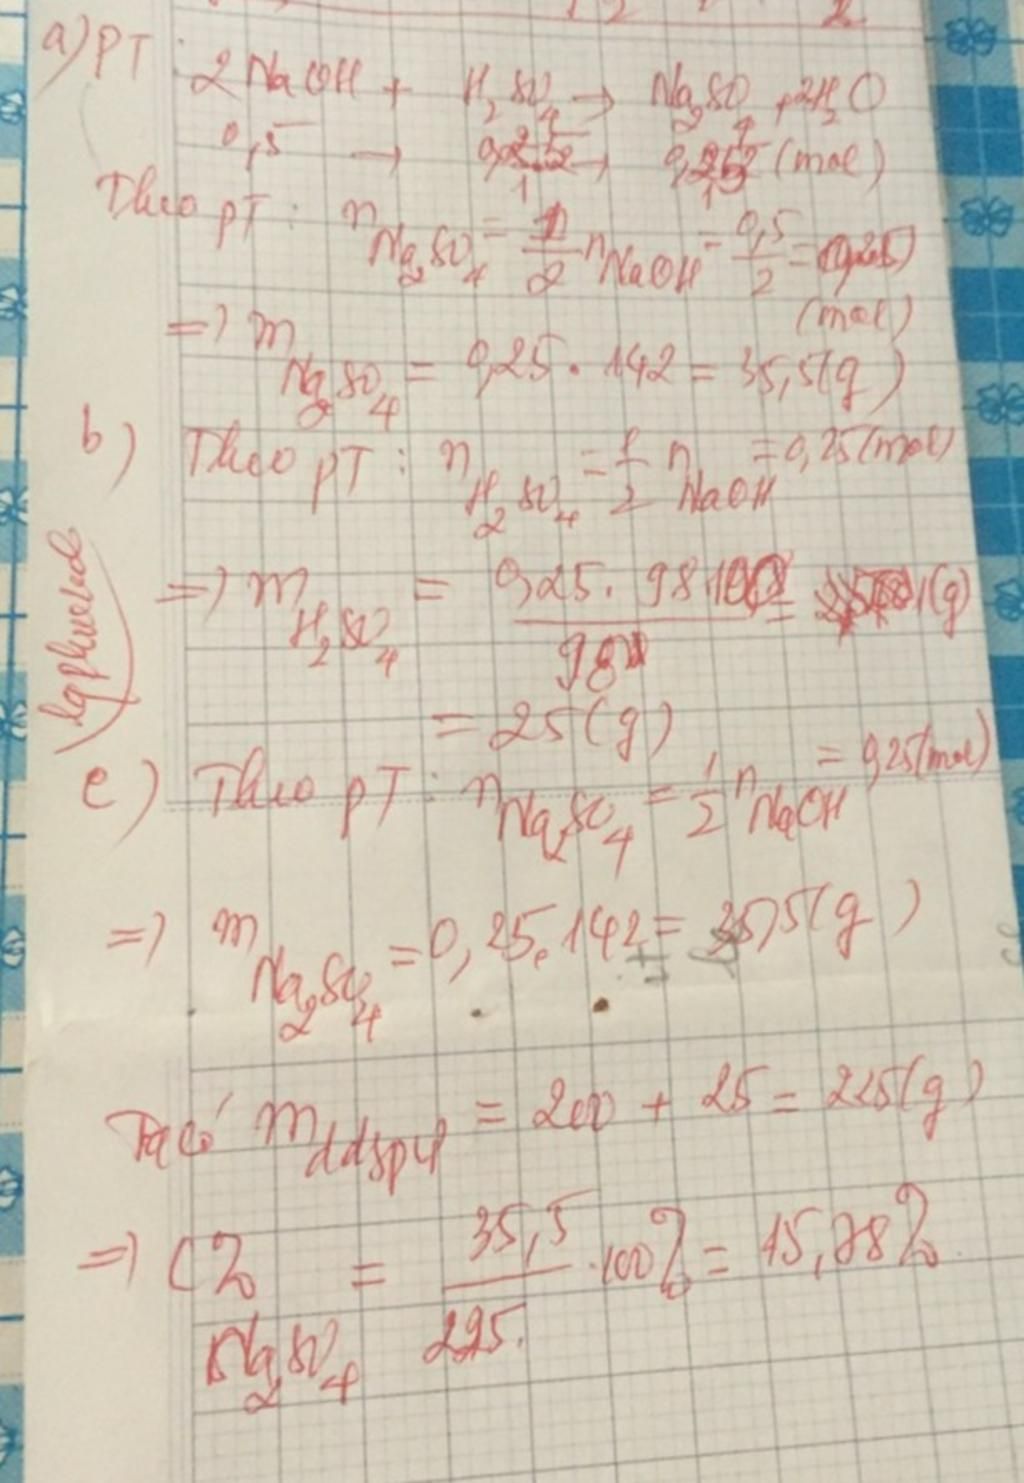 a) PT: 2NaOH + H₂SO₄ → Na₂SO₄ + 2H₂O
0,5 → 0,25 → 0,25 (mol)
Theo pT: nNa₂SO₄ = 1/2 nNaOH = 0,5/2 = 0,25
(mol)
=) mNa₂SO₄ = 0,25 . 142 = 35,5(g)
b) Theo pT: nH₂SO₄ = 1/2 nNaOH = 0,25(mol)
=) mH₂SO₄ = 0,25 . 98.100/98 = (g)
= 25(g)
c) Theo pT: nNa₂SO₄ = 1/2 nNaOH = 0,25(mol)
=) mNa₂SO₄ = 0,25.142 = 35,5(g)
Ta có mddspứ = 200 + 25 = 225(g)
=) C%Na₂SO₄ = 35,5/225 . 100% = 15,78%